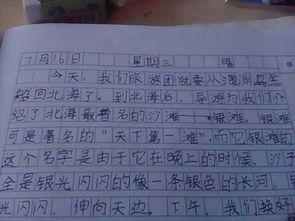 7月16日 星期三 晴
今天，我们旅游团就要从涠洲岛坐
船回北海了。到北海后，导游为我们介
绍了北海最著名的沙滩——银滩，银滩
可是著名的“天下第一滩”，而它银滩的
这个名字是由于它在晚上的时候，沙子
全是银光闪闪的像一条银色的长河，
光闪闪，伸向天边。下午，我们换好